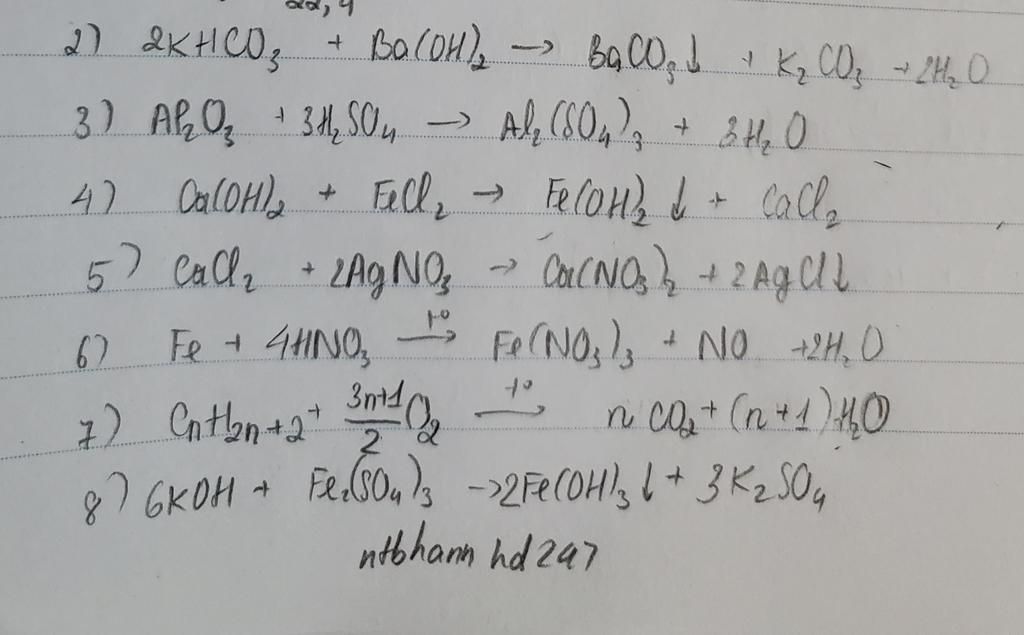 22,4
2) 2KHCO₃ + Ba(OH)₂ → BaCO₃↓ + K₂CO₃ + 2H₂O
3) Al₂O₃ + 3H₂SO₄ → Al₂(SO₄)₃ + 3H₂O
4) Ca(OH)₂ + FeCl₂ → Fe(OH)₂↓ + CaCl₂
5) CaCl₂ + 2AgNO₃ → Ca(NO₃)₂ + 2AgCl↓
6) Fe + 4HNO₃ –t°→ Fe(NO₃)₃ + NO + 2H₂O
7) CnH2n+2 + (3n+1)/2 O₂ –t°→ nCO₂ + (n+1)H₂O
8) 6KOH + Fe₂(SO₄)₃ → 2Fe(OH)₃↓ + 3K₂SO₄
ntbhann hd247